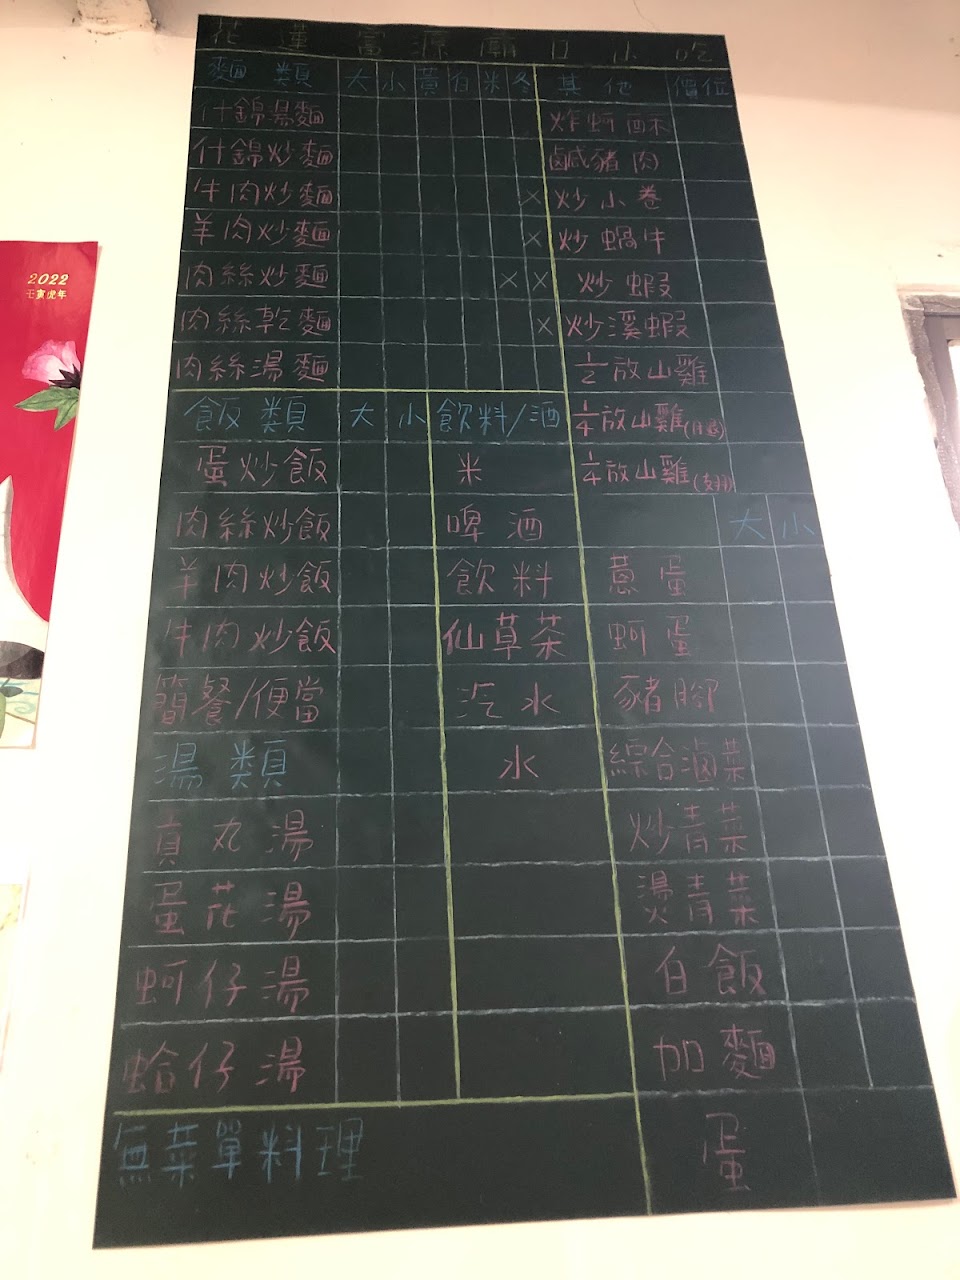 花蓮富源廟口小吃
麵類 大 小 黃 白 米 冬 其他 價位
什錦湯麵 炸蚵酥
什錦炒麵 鹹豬肉
牛肉炒麵 × 炒小卷
羊肉炒麵 × 炒蝸牛
肉絲炒麵 × × 炒蝦
肉絲乾麵 × 炒溪蝦
肉絲湯麵 1/2放山雞
飯類 大 小 飲料/酒 1/4放山雞
蛋炒飯 米 1/4放山雞
肉絲炒飯 啤酒 大 小
羊肉炒飯 飲料 蔥蛋
牛肉炒飯 仙草茶 蚵蛋
簡餐/便當 汽水 豬腳
湯類 水 綜合滷菜
貢丸湯 炒青菜
蛋花湯 燙青菜
蚵仔湯 白飯
蛤仔湯 加麵
無菜單料理 蛋
2022
壬寅虎年